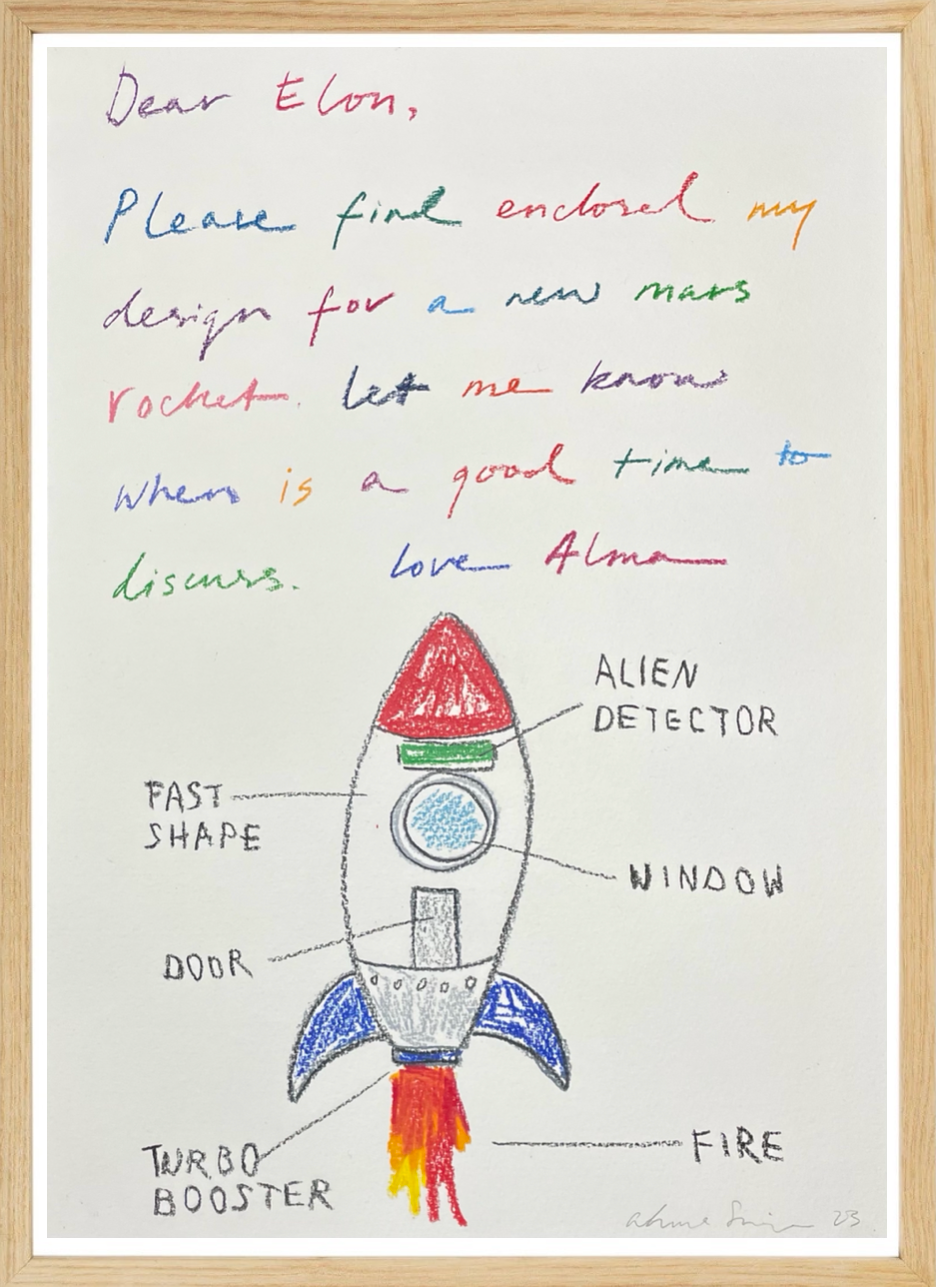 Dear Elon,
Please find enclosed my
design for a new mars
rocket. let me know
when is a good time to
discuss. love Alma
ALIEN
DETECTOR
FAST
SHAPE
WINDOW
DOOR
TURBO
BOOSTER
FIRE
23